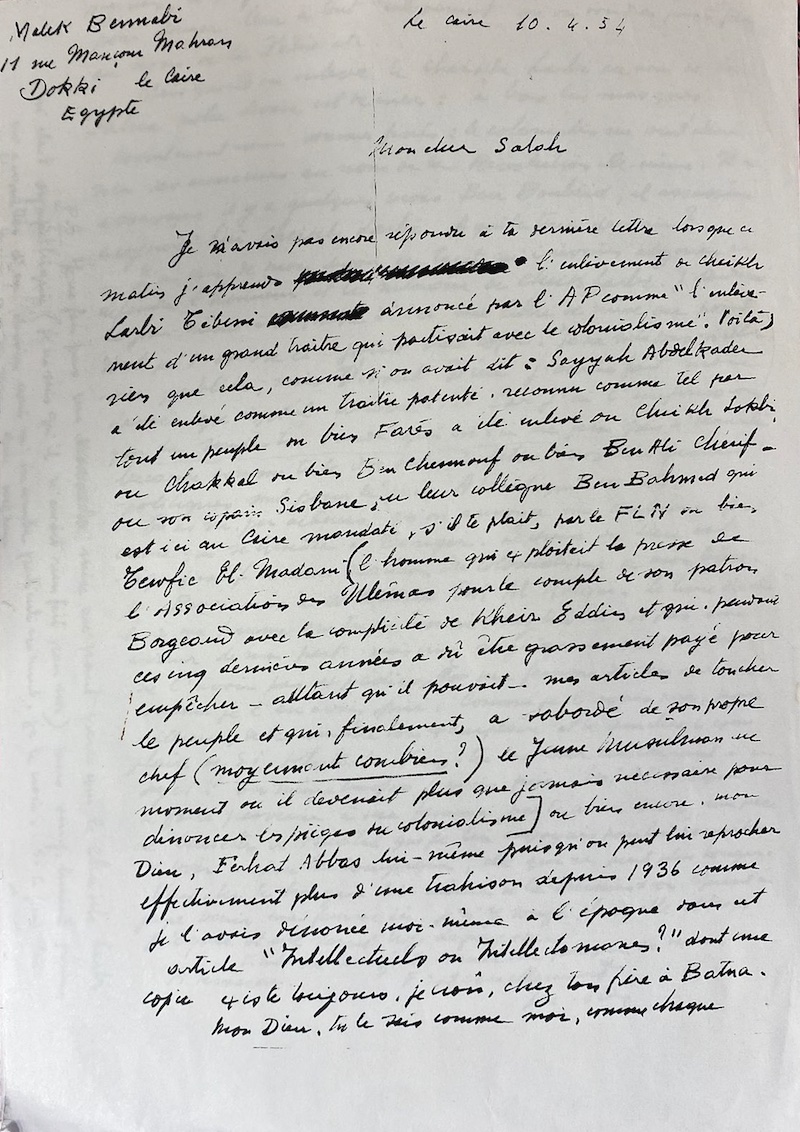 Malek Bennabi
11 rue Mançour Mahran
Dokki le Caire
Egypte
Le Caire 10.4.54
Mon cher Salah
Je n'avais pas encore répondre à ta dernière lettre lorsque ce
matin j'apprends l'enlèvement de Cheikh
Larbi Tébessi annoncé par l'AP comme "l'enlève-
ment d'un grand traître qui pactisait avec le colonialisme". Voilà,
rien que cela, comme si on avait dit : Sayyah Abdelkader
a été enlevé comme un traître patenté, reconnu comme tel par
tout un peuple ou bien Farès a été enlevé ou Cheikh
ou Chakkal ou bien Ben Chennouf ou bien Ben Ali Chérif -
ou son copain Sisbane, ou leur collègue Ben Bahmed qui
est ici au Caire mandaté, s'il te plait, par le FLN ou bien
Tewfic El-Madani (l'homme qui exploitait la presse de
l'Association des Ulémas pour le compte de son patron
Borgeaud avec la complicité de Kheir Eddin et qui, pendant
ces inq dernières années a dû être grassement payé pour
empêcher - autant qu'il pouvait - mes articles de toucher
le peuple et qui, finalement, a sabordé de son propre
chef (moyennant combien?) le Jeune Musulman au
moment où il devenait plus que jamais nécessaire pour
dénoncer les pièges du colonialisme] ou bien encore, mon
Dieu, Ferhat Abbas lui-même puisqu'on peut lui reprocher
effectivement plus d'une trahison depuis 1936 comme
je l'avais dénoncé moi-même à l'époque dans cet
article "Intellectuels ou Intellectomanes?" dont une
copie existe toujours, je crois, chez ton frère à Batna.
Mon Dieu, tu le sais comme moi, comme chaque